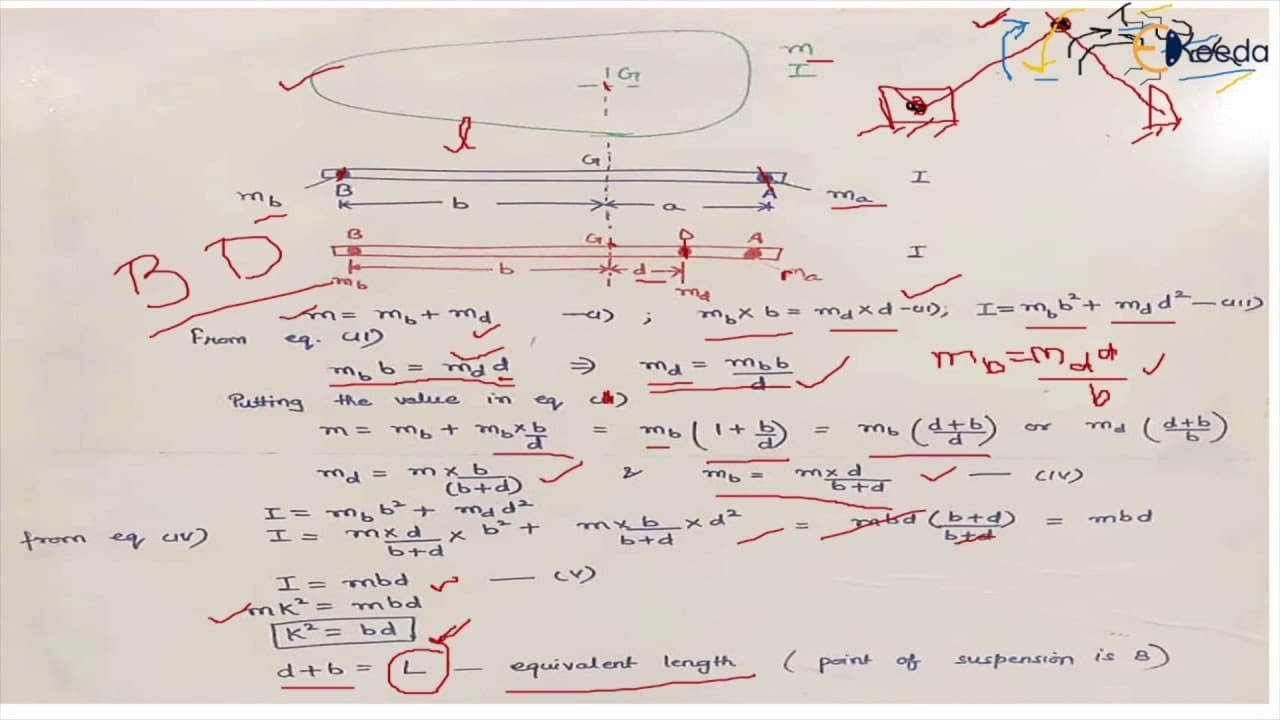 m
I
G
l
Keeda
G
I
m_b
B
A
m_a
b
a
B
G
D
A
I
b
d
m_b
m_d
m_a
B D
m = m_b + m_d —(I) ; m_b × b = m_d × d —(II); I = m_b b² + m_d d² —(III)
From eq. (II)
m_b b = m_d d ⇒ m_d = m_b b / d
m_b = m_d d / b
Putting the value in eq (I)
m = m_b + m_b × b/d = m_b (1 + b/d) = m_b ((d+b)/d) or m_d ((d+b)/b)
m_d = m × b/(b+d) & m_b = m×d/(b+d) — (IV)
I = m_b b² + m_d d²
from eq (IV) I = m×d/(b+d) × b² + m×b/(b+d) × d² = mbd (b+d)/(b+d) = mbd
I = mbd — (V)
mK² = mbd
K² = bd
d+b = L — equivalent length ( point of suspension is B)